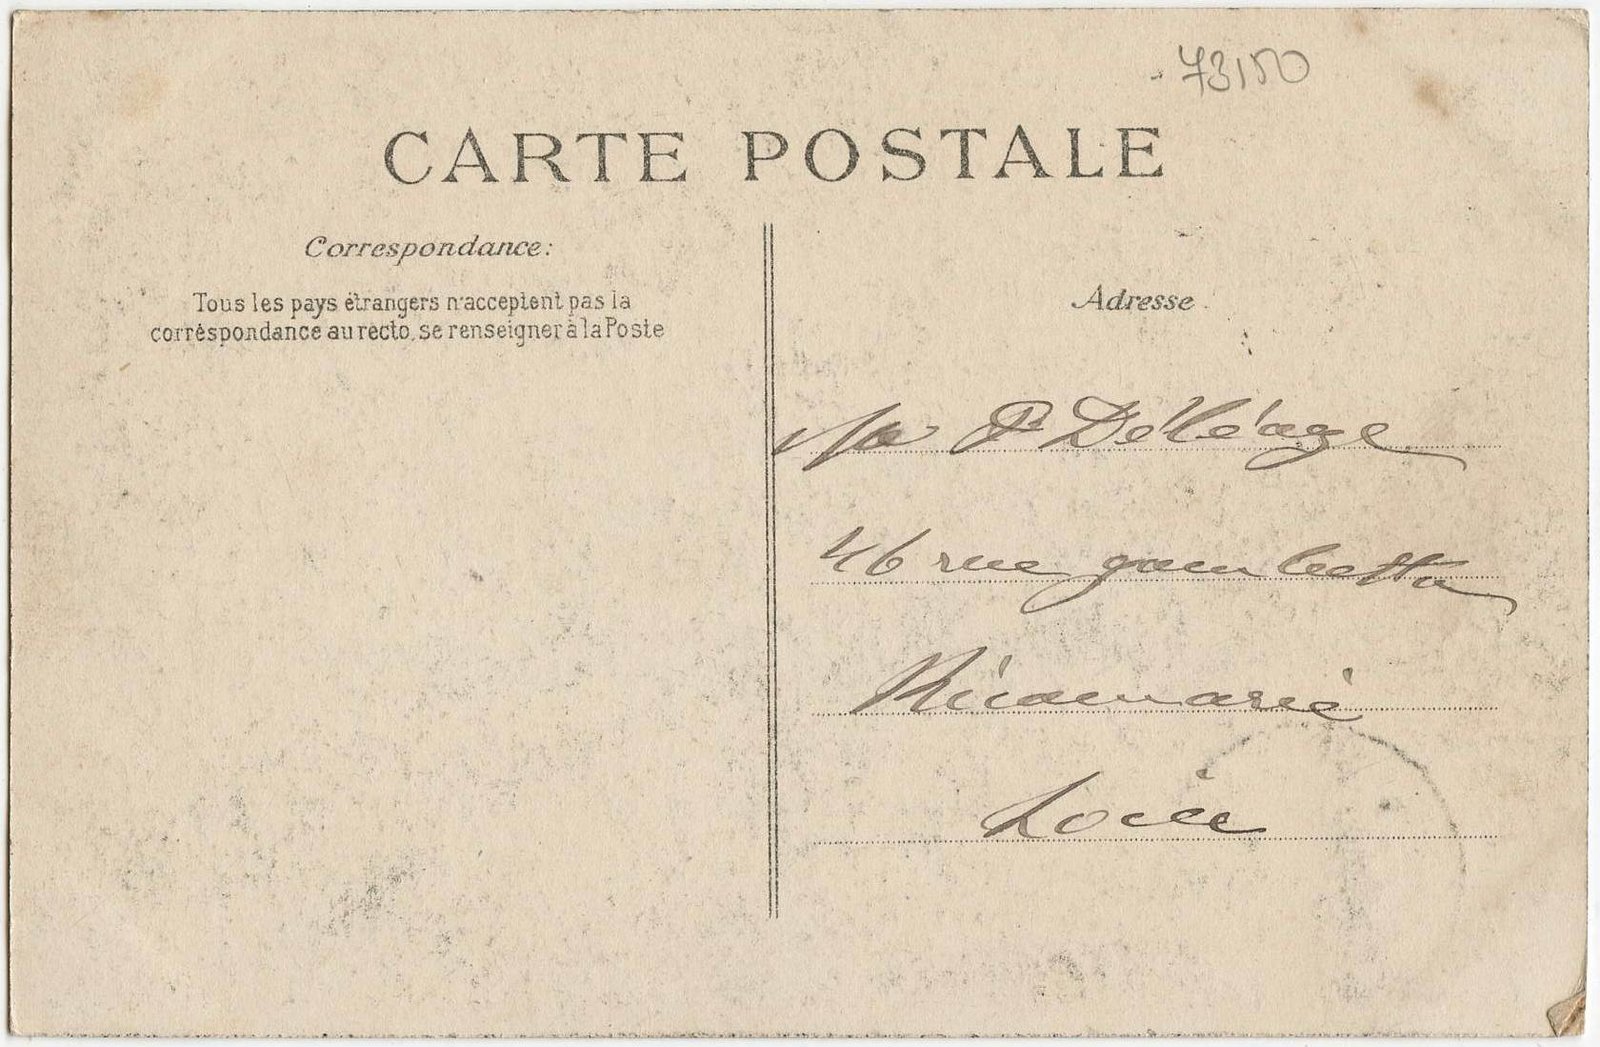 73150
CARTE POSTALE
Correspondance:
Tous les pays étrangers n'acceptent pas la
correspondance au recto, se renseigner à la Poste
Adresse
P Déléage
46 rue gambetta
Ricamarie
Loire